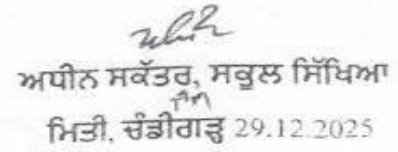 ਅਧੀਨ ਸਕੱਤਰ, ਸਕੂਲ ਸਿੱਖਿਆ
ਮਿਤੀ, ਚੰਡੀਗੜ੍ਹ 29.12.2025